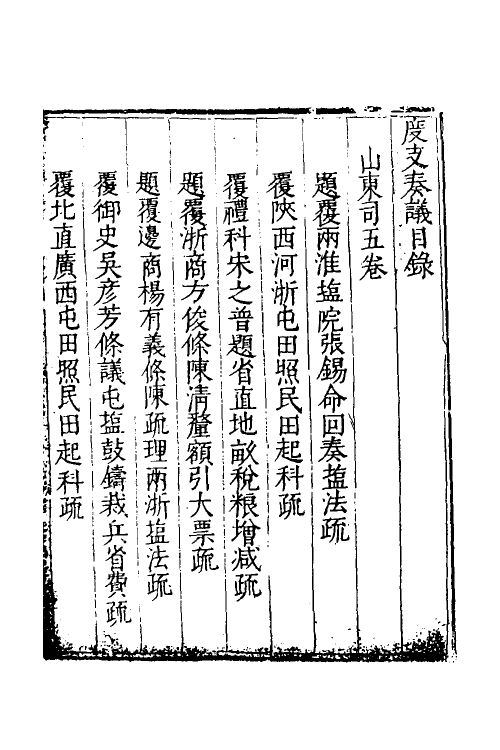 度支奏議目錄
山東司五卷
題覆兩淮塩院張錫命回奏塩法疏
覆陝西河浙屯田照民田起科疏
覆禮科宋之普題省直地畝稅粮增减疏
題覆浙商方俊條陳清釐額引大票疏
題覆邊商楊有義條陳疏理兩浙塩法疏
覆御史吳彦芳條議屯塩鼓鑄裁兵省費疏
覆北直廣西屯田照民田起科疏